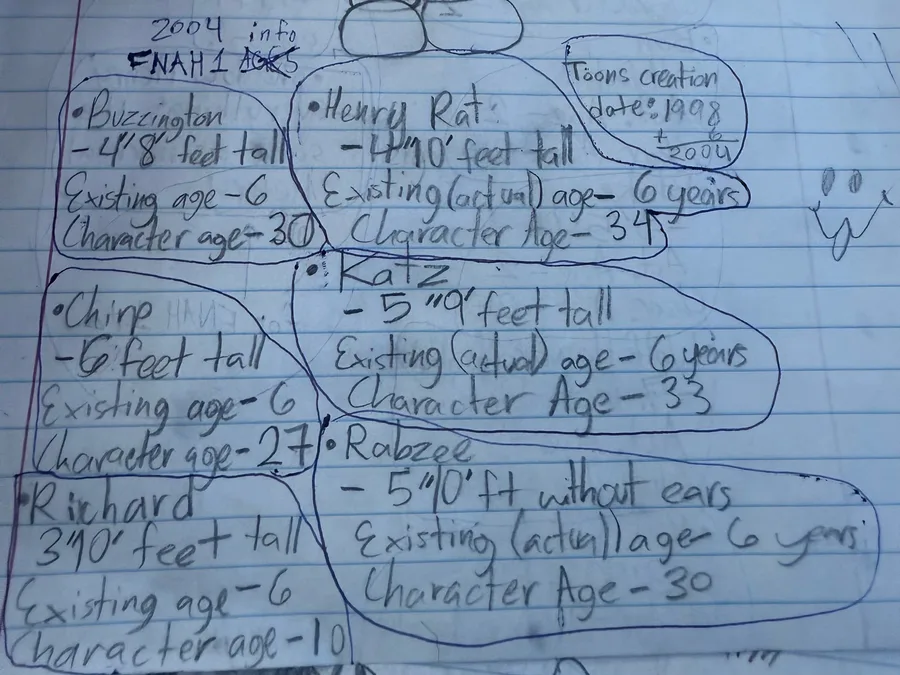 2004 info
FNAH 1 AGES
Toons creation
date: 1998
+ 6
2004
• Buzzington
- 4"8' feet tall
Existing age - 6
Character age - 30
• Henry Rat:
- 4"10' feet tall
Existing (actual) age - 6 years
Character Age - 34
• Chirp
- 6 feet tall
Existing age - 6
Character age - 27
• Katz
- 5"9' feet tall
Existing (actual) age - 6 years
Character Age - 33
• Richard
3"10' feet tall
Existing age - 6
Character age - 10
• Rabzee
- 5"10' ft without ears
Existing (actual) age - 6 years
Character Age - 30